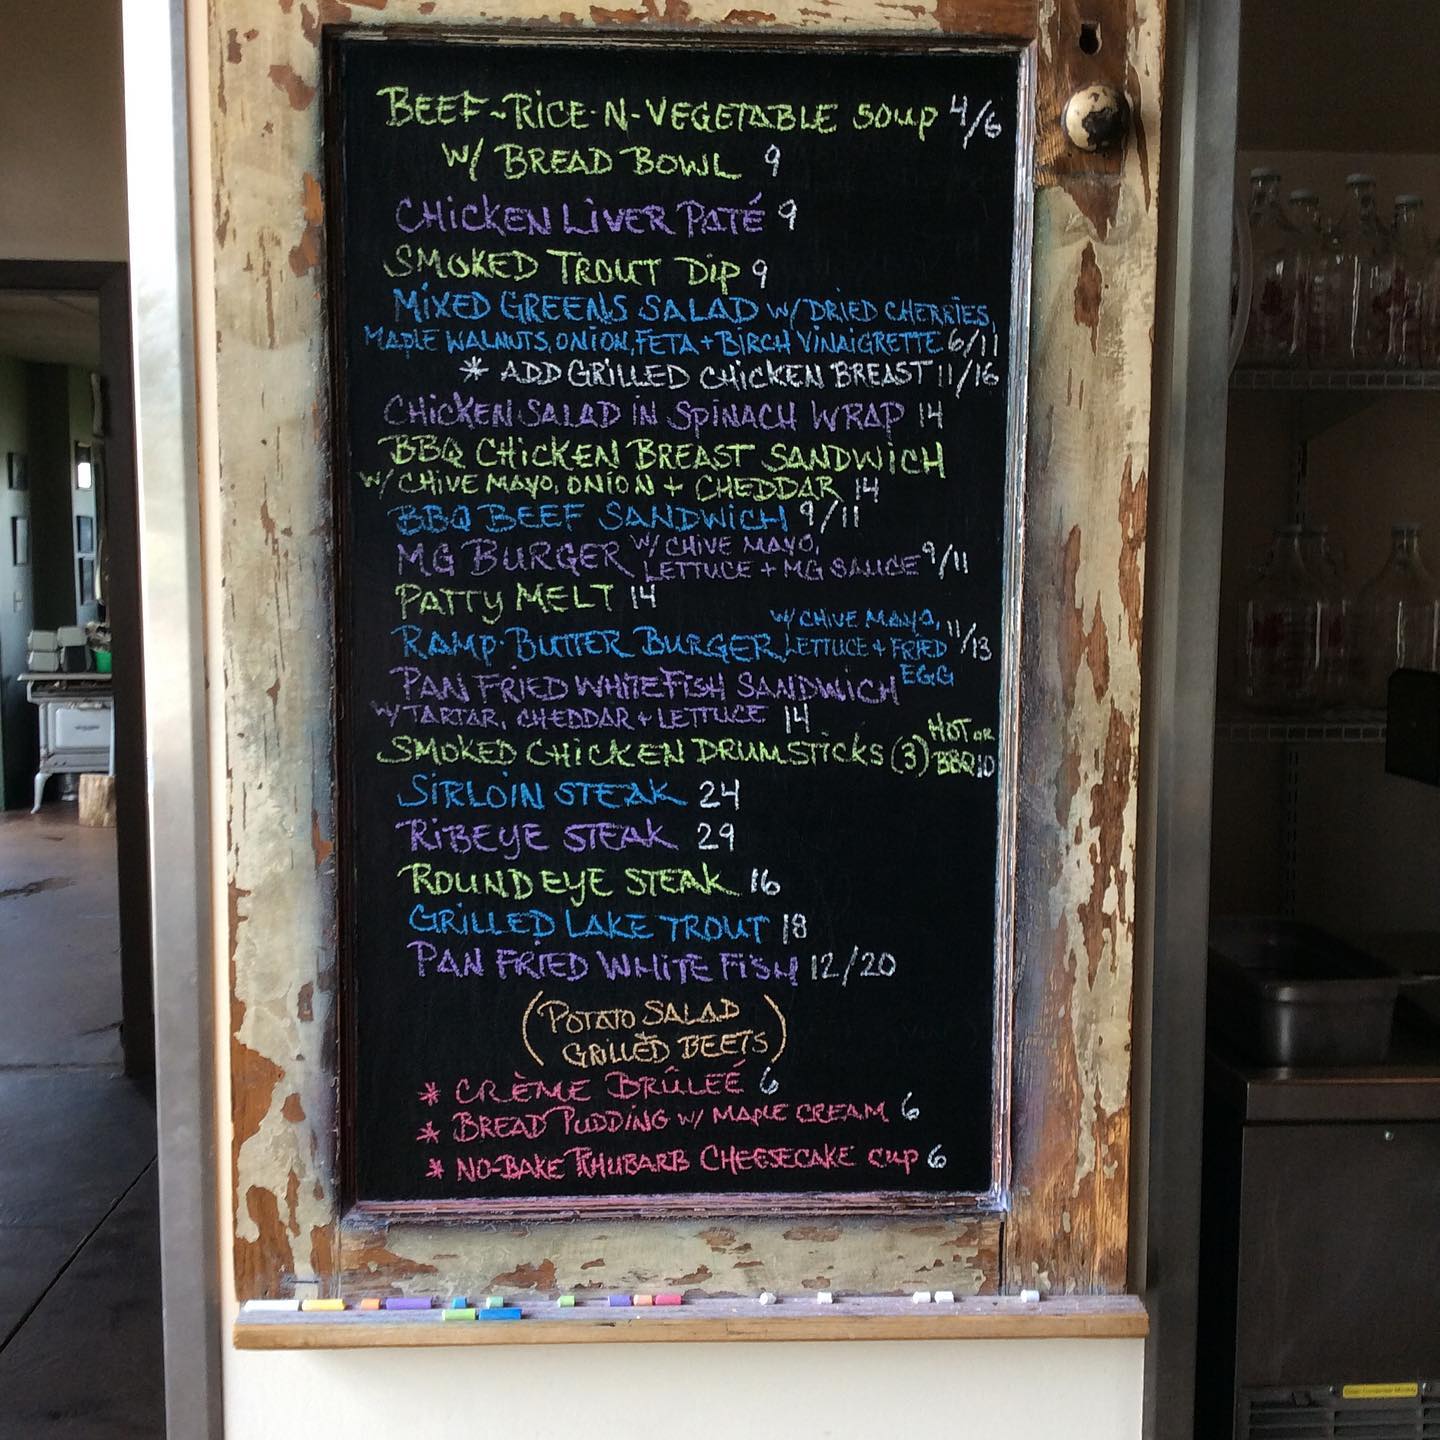 BEEF~RICE-N-VEGETABLE SOUP 4/6
W/ BREAD BOWL 9
CHICKEN LIVER PATÉ 9
SMOKED TROUT DIP 9
MIXED GREENS SALAD W/ DRIED CHERRIES,
MAPLE WALNUTS, ONION, FETA + BIRCH VINAIGRETTE 6/11
* ADD GRILLED CHICKEN BREAST 11/16
CHICKEN SALAD IN SPINACH WRAP 14
BBQ CHICKEN BREAST SANDWICH
W/ CHIVE MAYO, ONION + CHEDDAR 14
BBQ BEEF SANDWICH 9/11
MG BURGER W/ CHIVE MAYO,
LETTUCE + MG SAUCE 9/11
PATTY MELT 14
RAMP-BUTTER BURGER W/ CHIVE MAYO,
LETTUCE + FRIED
EGG 11/13
PAN FRIED WHITEFISH SANDWICH
W/ TARTAR, CHEDDAR + LETTUCE 14
SMOKED CHICKEN DRUMSTICKS (3) HOT OR
BBQ 10
SIRLOIN STEAK 24
RIBEYE STEAK 29
ROUND EYE STEAK 16
GRILLED LAKE TROUT 18
PAN FRIED WHITE FISH 12/20
(POTATO SALAD
+
GRILLED BEETS)
* CRÈME BRÛLEÉ 6
* BREAD PUDDING W/ MAPLE CREAM 6
* NO-BAKE RHUBARB CHEESECAKE CUP 6